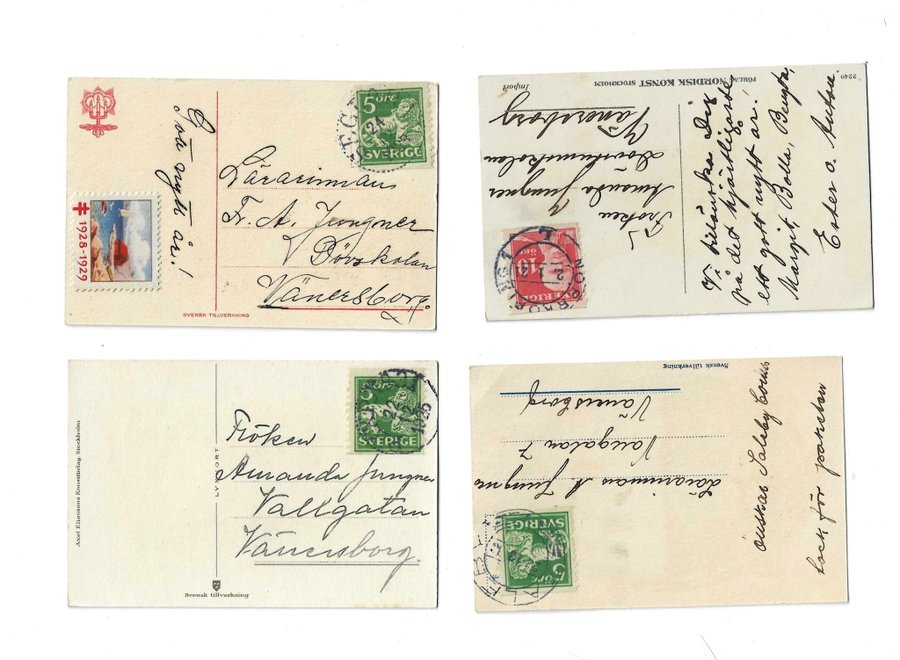 God nytt år!
1928-1929
5 ÖRE
SVERIGE
Lärarinnan
Fr. A. Jungner
Dövskolan
Vänersborg
SVENSK TILLVERKNING
2240
FÖRLAG NORDISK KONST STOCKHOLM
Import
Vi tillönska Dig
på det hjärtligaste
ett gott nytt år.
Margit, Bolla, Bengta,
Ester o. Anton
Fröken
Amanda Jungner
Dövstumskolan
Vänersborg
10
ÖRE
SVERIGE
NORRKÖPING 1
Axel Eliassons Konstförlag, Stockholm
LYXKORT
5 ÖRE
SVERIGE
Fröken
Amanda Jungner
Vallgatan
Vänersborg.
Svensk tillverkning
Svensk tillverkning
Lärarinnan A Jungner
Vallgatan 7
Vänersborg
SVERIGE
5 ÖRE
önskas
tack för